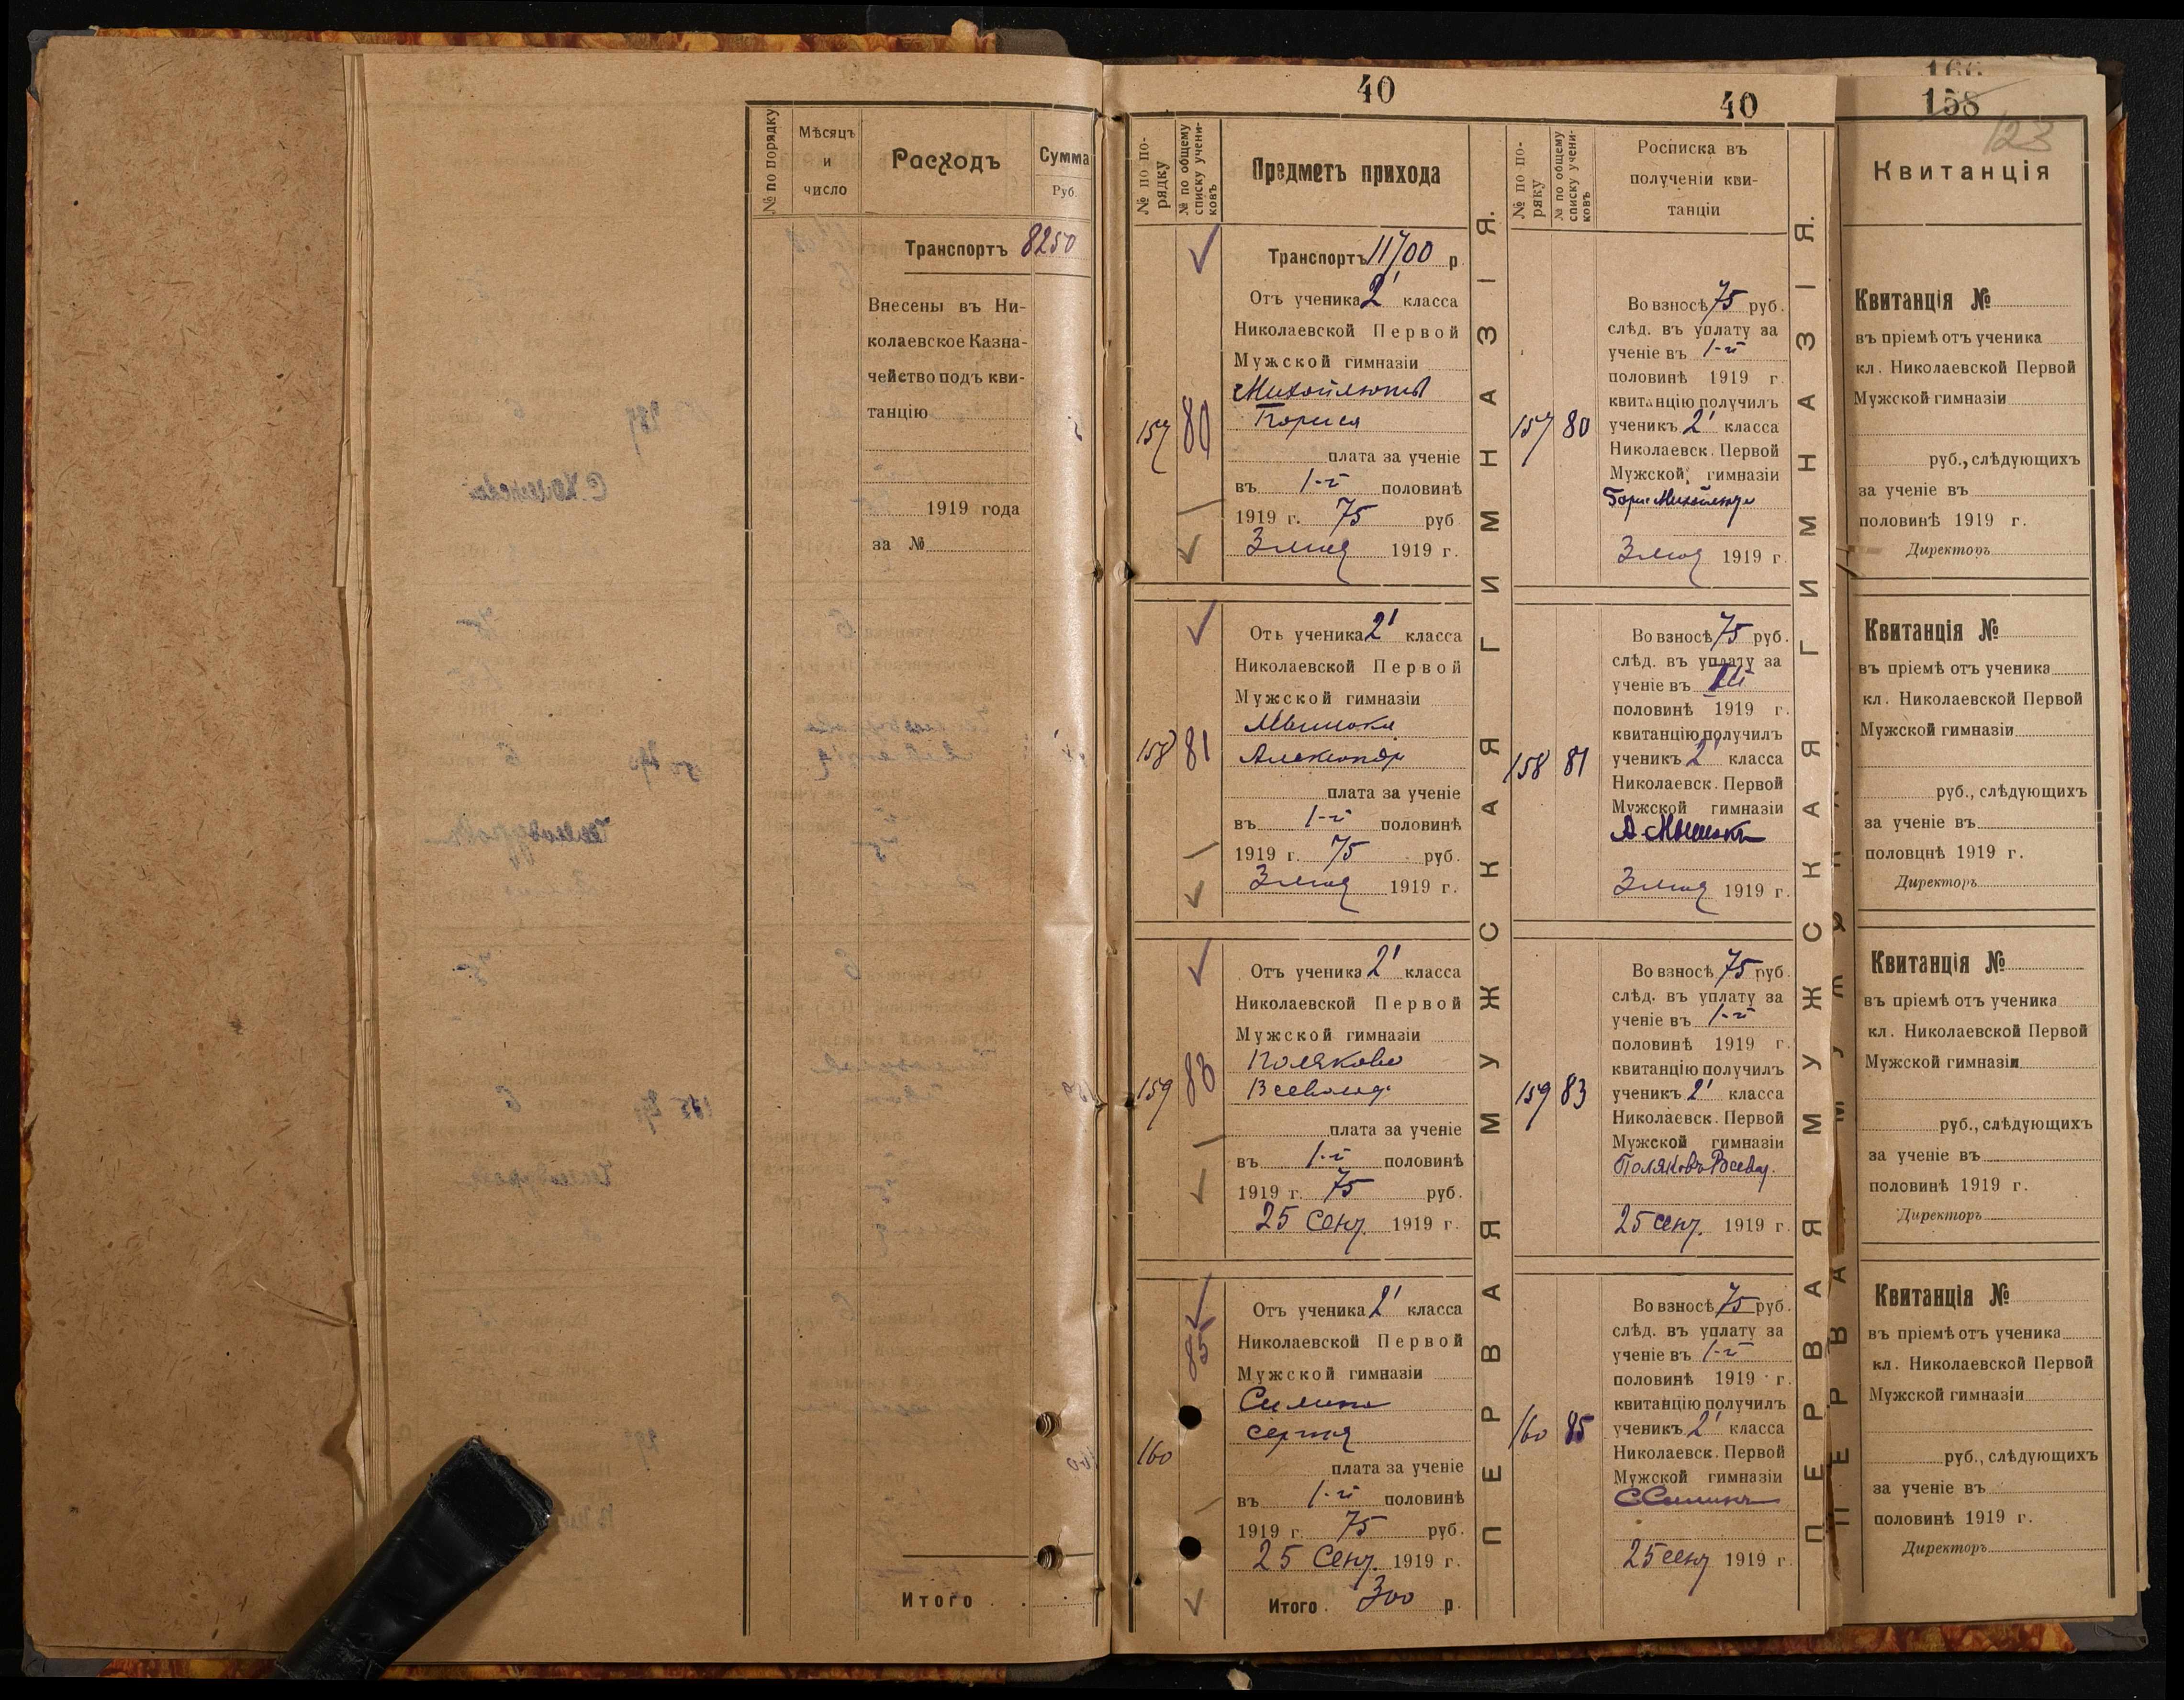 № по порядку
Мѣсяцъ
и
число
Расходъ
Сумма
Руб.
Транспортъ 8250
Внесены въ Ни-
колаевское Казна-
чейство подъ кви-
танцію
1919 года
за №
Итого . .
40
№ по по-
рядку
№ по общему
списку учени-
ковъ
Предметъ прихода
Транспортъ 11700 р.
157
80
Отъ ученика 2¹ класса
Николаевской Первой
Мужской гимназіи
Бориса
плата за ученіе
въ 1-й половинѣ
1919 г. 75 руб
3 мая 1919 г.
158
81
Отъ ученика 2¹ класса
Николаевской Первой
Мужской гимназіи
плата за ученіе
въ 1-й половинѣ
1919 г. 75 руб.
3 мая 1919 г.
159
83
Отъ ученика 2¹ класса
Николаевской Первой
Мужской гимназіи
Полякова
Всеволод.
плата за ученіе
въ 1-й половинѣ
1919 г. 75 руб.
25 Сент. 1919 г.
160
85
Отъ ученика 2¹ класса
Николаевской Первой
Мужской гимназіи
Силина
Сергея
плата за ученіе
въ 1-й половинѣ
1919 г. 75 руб.
25 Сент. 1919 г.
Итого . 300 р.
ПЕРВАЯ МУЖСКАЯ ГИМНАЗІЯ.
40
№ по по-
ряку
№ по общему
списку учени-
ковъ
Росписка въ
полученіи кви-
танціи
157 80
Во взносѣ 75 руб.
слѣд. въ уплату за
ученіе въ 1-й
половинѣ 1919 г.
квитанцію получилъ
ученикъ 2¹ класса
Николаевск. Первой
Мужской гимназіи
3 мая 1919 г.
158 81
Во взносѣ 75 руб.
слѣд. въ уплату за
ученіе въ
половинѣ 1919 г.
квитанцію получилъ
ученикъ 2¹ класса
Николаевск. Первой
Мужской гимназіи
3 мая 1919 г.
159 83
Во взносѣ 75 руб.
слѣд. въ уплату за
ученіе въ 1-й
половинѣ 1919 г.
квитанцію получилъ
ученикъ 2¹ класса
Николаевск. Первой
Мужской гимназіи
Поляковъ Всевол.
25 сент. 1919 г.
160 85
Во взносѣ 75 руб.
слѣд. въ уплату за
ученіе въ 1-й
половинѣ 1919 г.
квитанцію получилъ
ученикъ 2¹ класса
Николаевск. Первой
Мужской гимназіи
С Силинъ
25 сент 1919 г.
ПЕРВАЯ МУЖСКАЯ ГИМНАЗІЯ.
166
158
123
Квитанція
Квитанція №
въ пріемѣ отъ ученика
кл. Николаевской Первой
Мужской гимназіи
руб., слѣдующихъ
за ученіе въ
половинѣ 1919 г.
Директоръ
Квитанція №
въ пріемѣ отъ ученика
кл. Николаевской Первой
Мужской гимназіи
руб., слѣдующихъ
за ученіе въ
половцнѣ 1919 г.
Директоръ
Квитанція №
въ пріемѣ отъ ученика
кл. Николаевской Первой
Мужской гимназіи
руб., слѣдующихъ
за ученіе въ
половинѣ 1919 г.
Директоръ
Квитанція №
въ пріемѣ отъ ученика
кл. Николаевской Первой
Мужской гимназіи
руб., слѣдующихъ
за ученіе въ
половинѣ 1919 г.
Директоръ